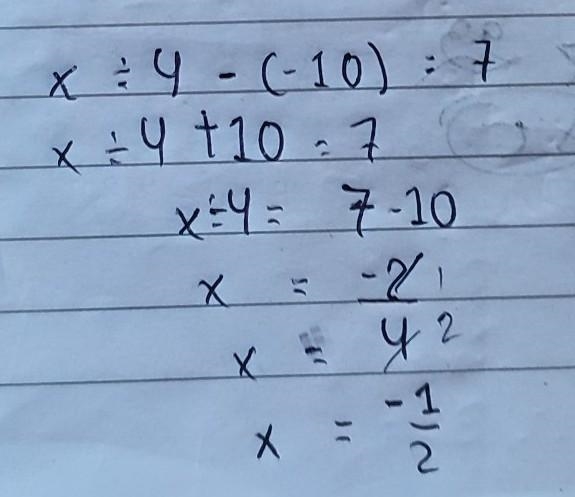 x ÷ 4 - (-10) = 7
x ÷ 4 + 10 = 7
x ÷ 4 = 7 - 10
x = -2/4 1
x = 2
x = -1/2